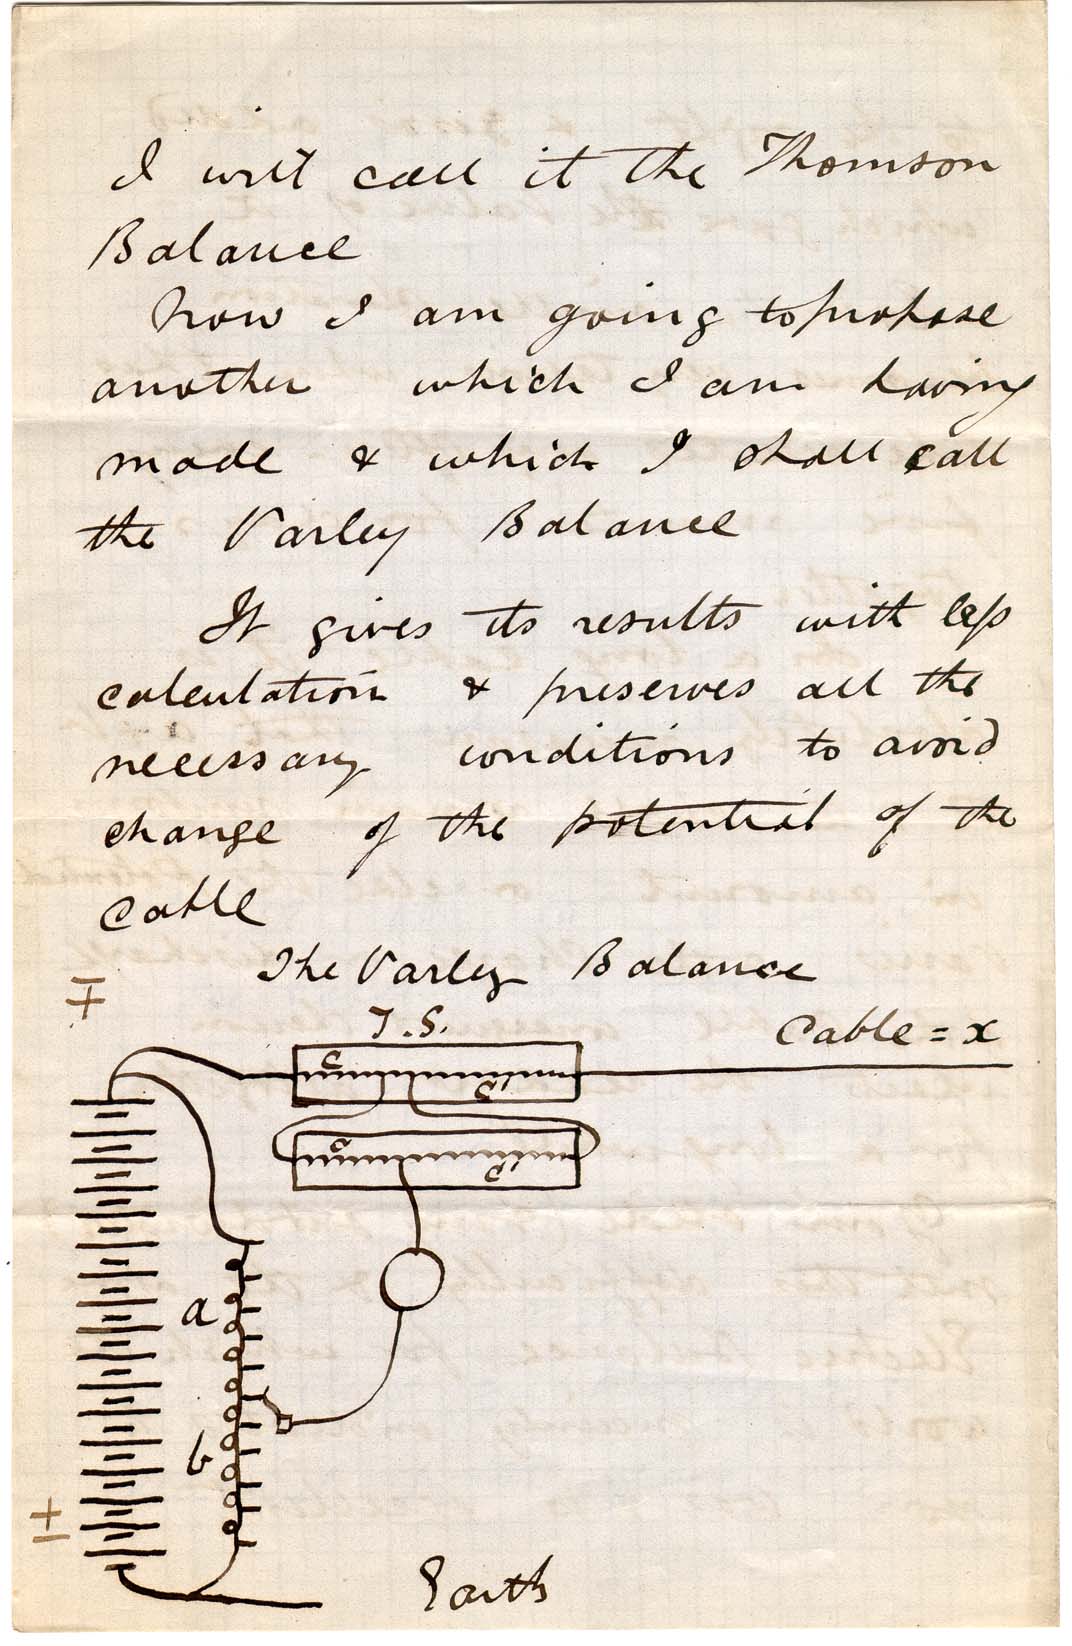 I will call it the Thomson
Balance
Now I am going to propose
another which I am having
made & which I shall call
the Varley Balance
It gives its results with less
calculation & preserves all the
necessary conditions to avoid
change of the potential of the
cable
The Varley Balance
∓
T.S.
Cable = x
a
b
±
Earth